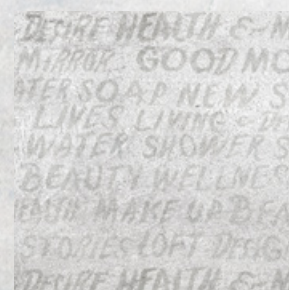 DESIRE HEALTH & M
MIRROR. GOOD MO
ATER SOAP NEW S
LIVES LIVING &
WATER SHOWER S
BEAUTY WELLNES
EALTH MAKE UP BEA
STORIES LOFT DESIG
DESIRE HEALTH & M